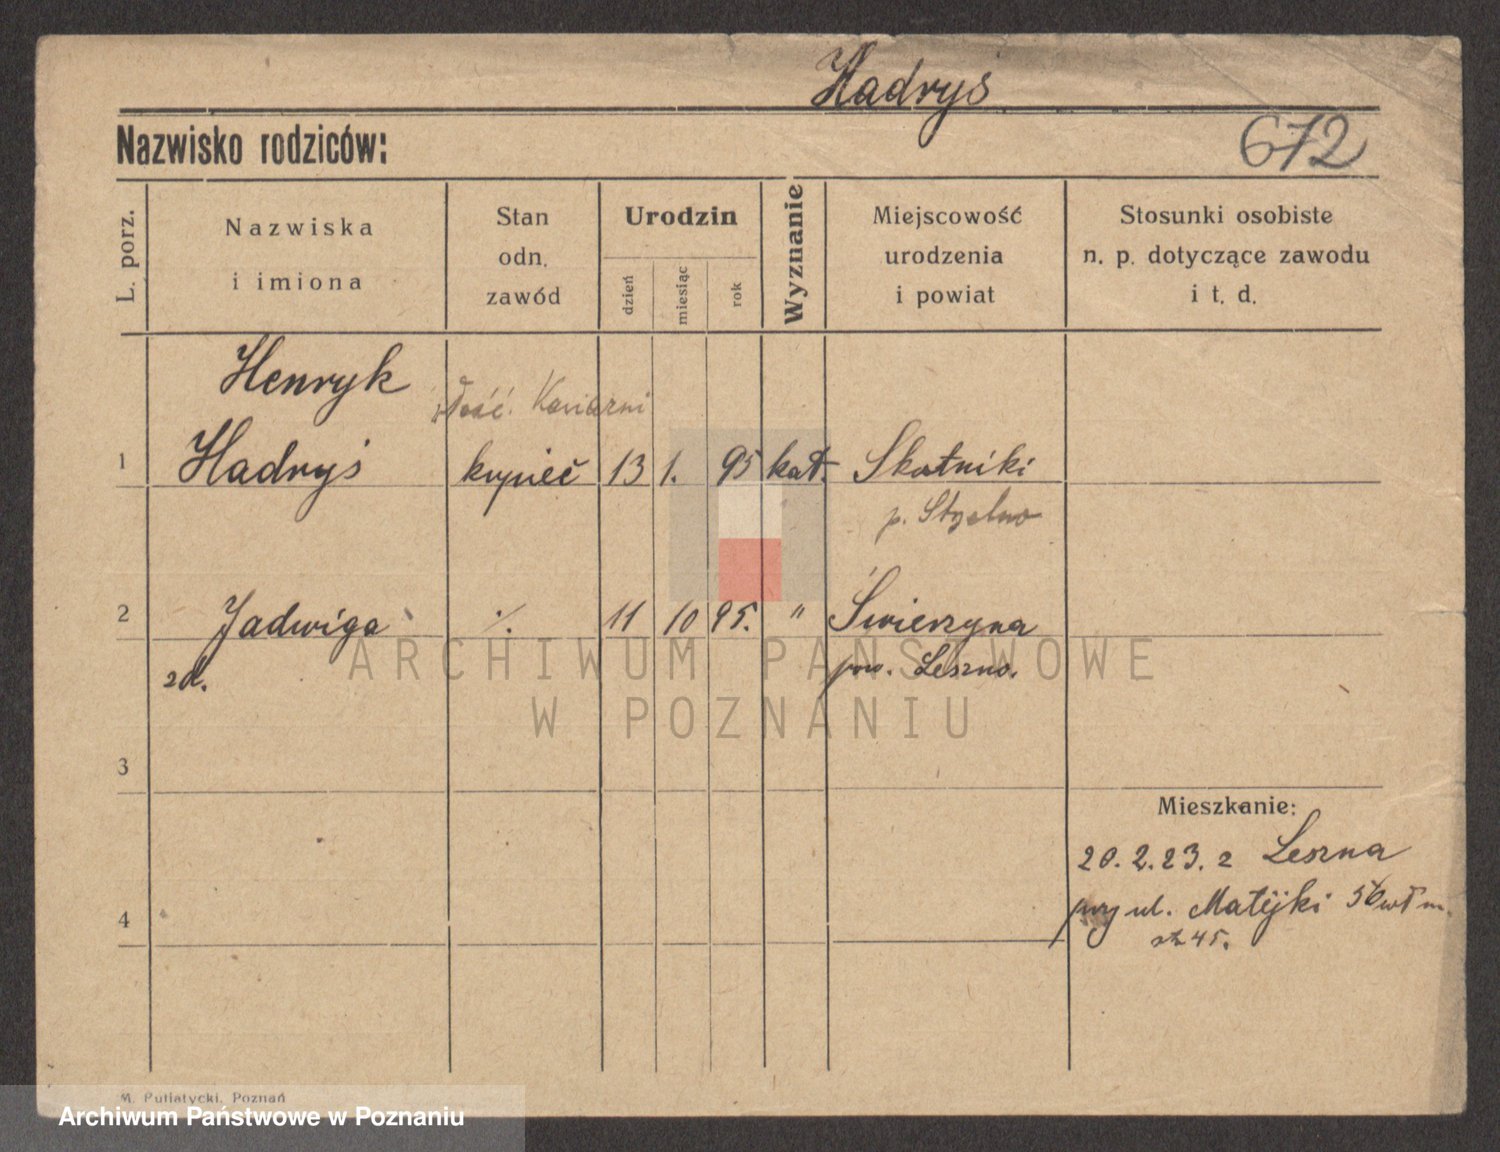 Hadryś
Nazwisko rodziców:
672
L. porz.
Nazwiska
i imiona
Stan
odn.
zawód
Urodzin
dzień
miesiąc
rok
Wyznanie
Miejscowość
urodzenia
i powiat
Stosunki osobiste
n. p. dotyczące zawodu
i t. d.
Henryk
Kawiarni
1 Hadryś kupiec 13 1. 95 kat. Skotniki
p. Strzelno
2 Jadwiga ·/. 11 10 95. " Świerzyna
zd. pow. Leszno.
ARCHIWUM PAŃSTWOWE
W POZNANIU
3
Mieszkanie:
20.2.23. z Leszna
przy ul. Matejki
4
45.
M. Putiatycki, Poznań
Archiwum Państwowe w Poznaniu